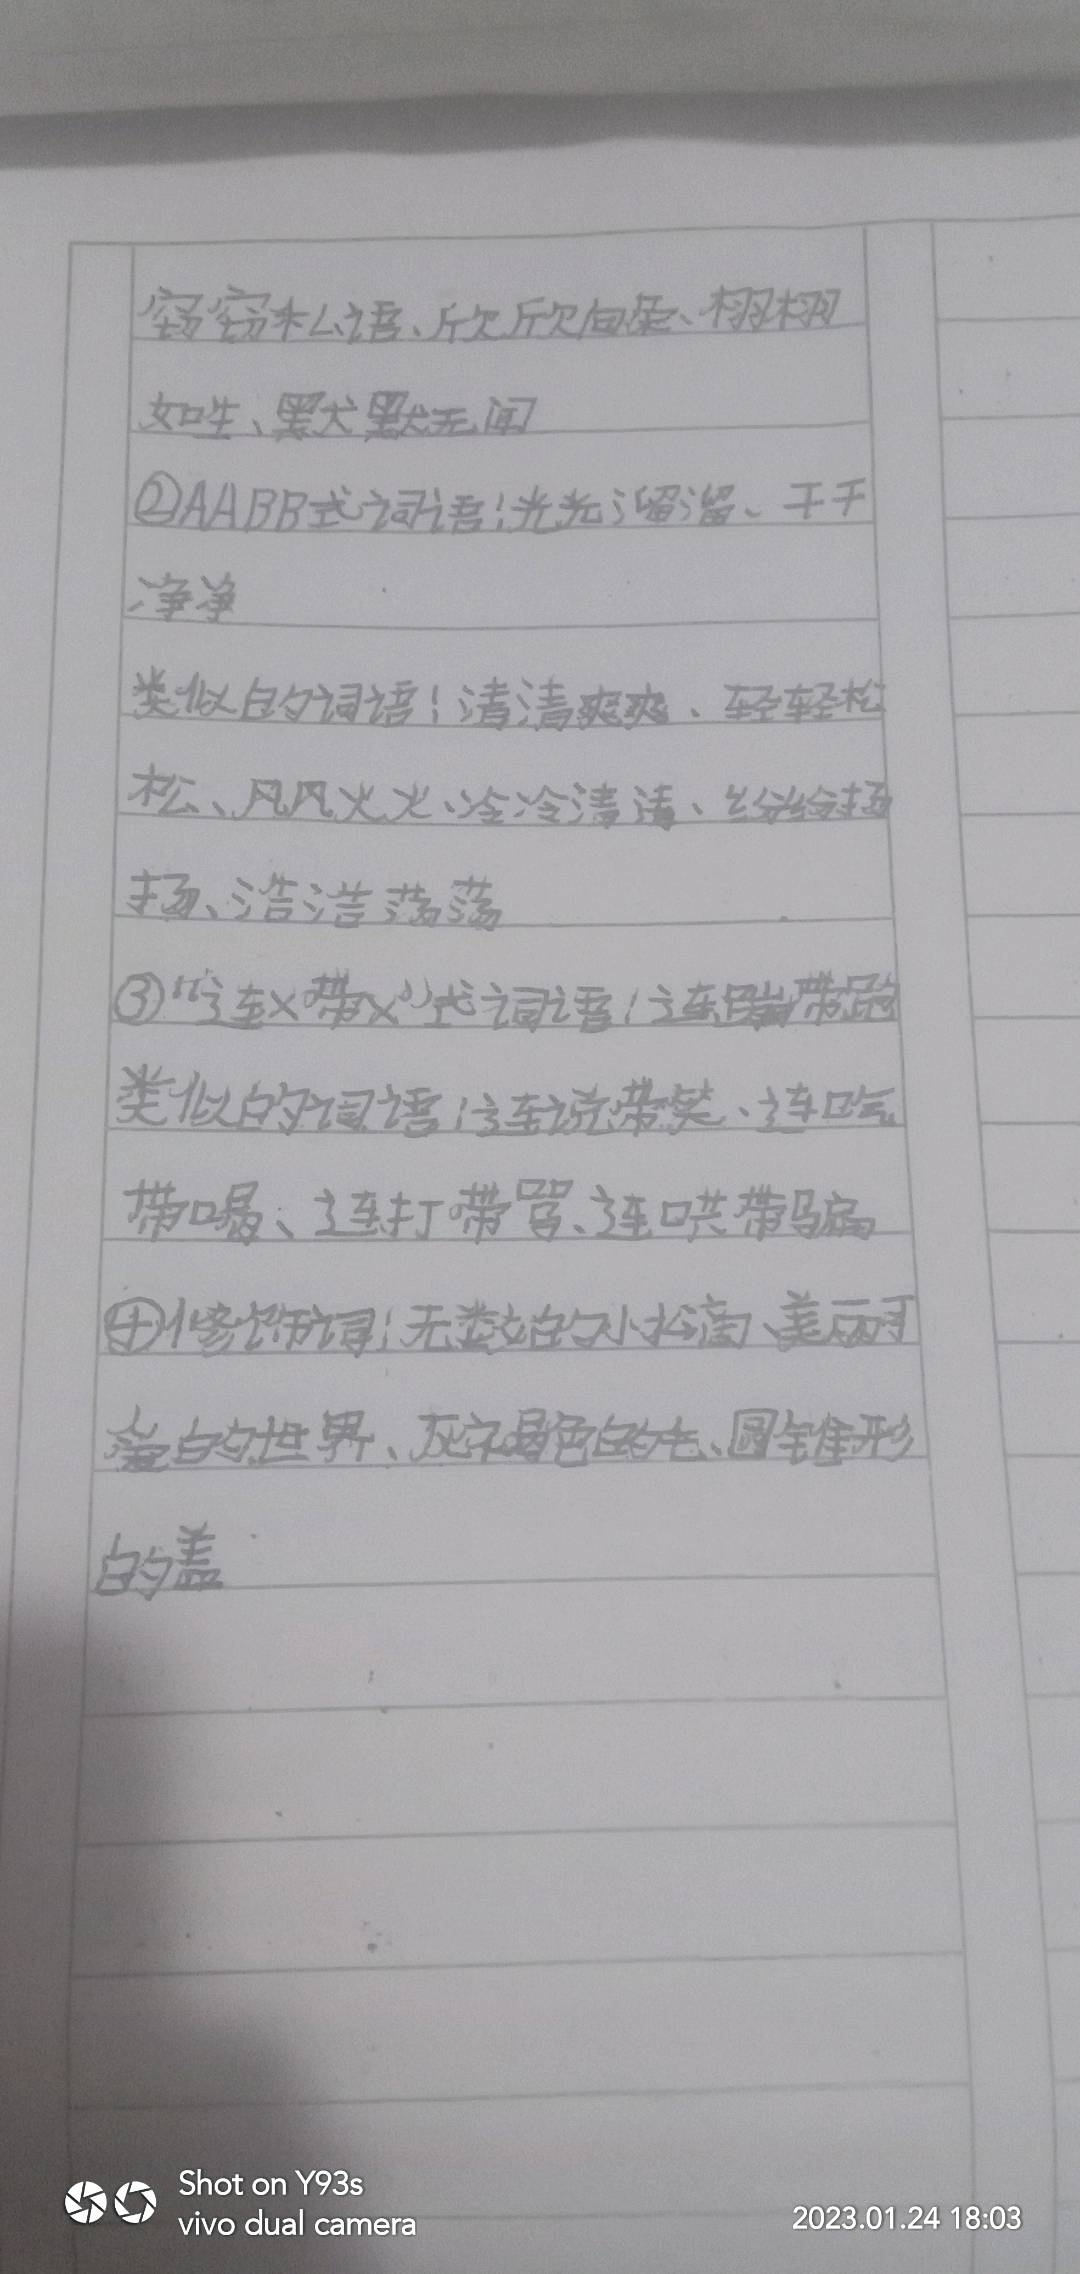 窃窃私语、欣欣向荣、栩栩
如生、默默无闻
②AABB式词语:光光溜溜、干干
净净
类似的词语:清清爽爽、轻轻松
松、风风火火、冷冷清清、纷纷扬
扬、浩浩荡荡
③“连×带×”式词语:连蹦带跑
类似的词语:连说带笑、连吃
带喝、连打带骂、连哄带骗
④修饰词:无数的小水滴、美丽可
爱的世界、灰褐色的壳、圆锥形
的盖
Shot on Y93s
vivo dual camera
2023.01.24 18:03